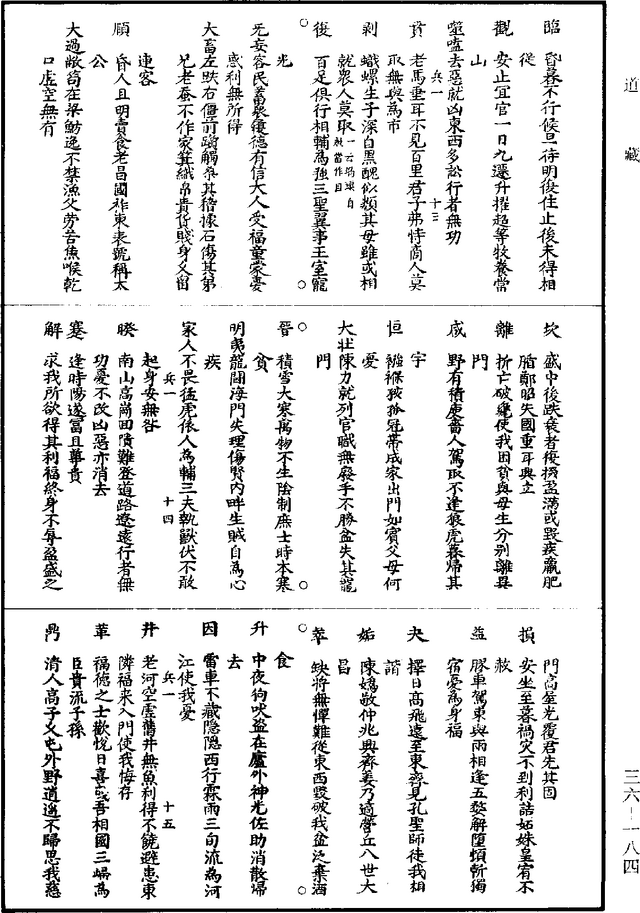 道藏
臨 昏暮不行候旦待明復住止後未得相
從
觀 安止宜官一日九遷升擢超等牧養常
山
噬嗑去惡就凶東西多訟行者無功
兵一 十三
賁 老馬垂耳不見百里君子弗恃商人莫
取無與為市
剥 蟻螺生子深白黑醜似類其母雖或相
就衆人莫取
復 百足俱行相輔為強三聖翼事王室寵
光
无妄容民畜衆優德有信大人受福童蒙憂
惑利無所得
大畜左跌右僵前躓觸桑其指據石傷其弟
兄老蚕不作家箕織帛貴貨賤身久留
連客
頤 昏人旦明賣食老昌國祚東表號稱太
公
大過敝笱在梁魴逸不禁漁父勞苦焦喉乾
口虚空無有
坎 盛中後跌衰者復掇盈滿或毀疾羸肥
腯鄭昭失國重耳興立
離 折亡破甕使我困貧與母生分别離異
門
咸 野有積庾嗇人駕取不逢狼虎暮歸其
宇
恒 襁褓孩孤冠帶成家出門如賓父母何
憂
大壯陳力就列官職無廢手不勝盆失其寵
門
晉 積雪大寒萬物不生陰制庶士時本寒
貧
明夷龍鬭海門失理傷賢内畔生賊自為心
疾
家人不畏猛虎依人為輔三夫執獸伏不敢
起身安無咎
兵一 十四
睽 南山高崗回隤難登道路遼遠行者無
功憂不改凶惡亦消去
蹇 逢時陽遂富且尊貴
解 求我所欲得其利福終身不辱盈盛之
門高屋先覆君先其國
損 安坐至暮禍灾不到利詰妬姝皇宥不
赦
益 膠車駕東與雨相逢五楘解墮頓斬獨
宿憂為身福
夬 擇日高飛遠至東齊見孔聖師徒我相
諧
姤 陳嬀敬仲兆興齊姜乃適營丘八世大
昌
萃 缺將無憚難從東西毀破我盆泛棄酒
食
升 中夜狗吠盜在廬外神光佐助消散歸
去
困 雷車不藏隱隱西行霖雨三旬流為河
江使我憂
井 老河空虚舊井無魚利得不饒避患東
隣福來入門使我悔存
兵一 十五
革 福德之士歡悦日喜夷吾相國三歸為
臣貴流子孫
鼎 清人高子久屯外野逍遥不歸思我慈
三六-一八四